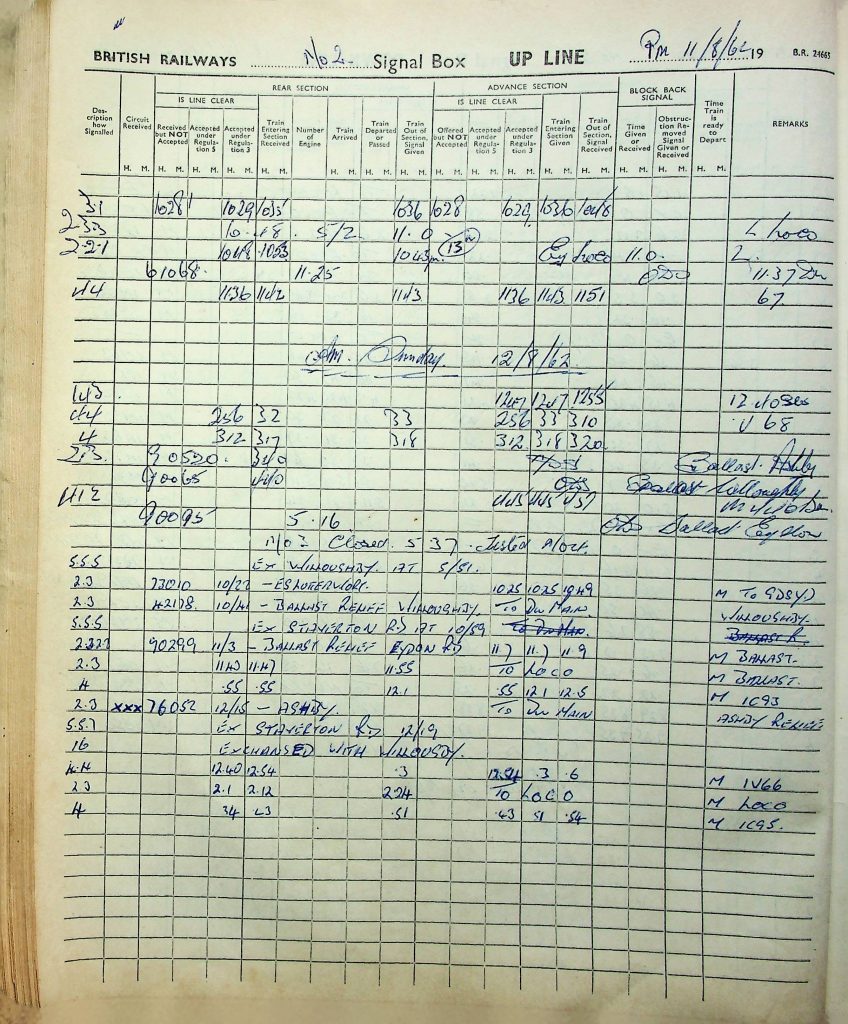 BRITISH RAILWAYS No 2 Signal Box UP LINE Pm 11/8/62 19 B.R. 24663
REAR SECTION ADVANCE SECTION BLOCK BACK SIGNAL
IS LINE CLEAR IS LINE CLEAR
Description how Signalled Circuit Received Received but NOT Accepted Accepted under Regulation 5 Accepted under Regulation 3 Train Entering Section Received Number of Engine Train Arrived Train Departed or Passed Train Out of Section, Signal Given Offered but NOT Accepted Accepted under Regulation 5 Accepted under Regulation 3 Train Entering Section Given Train Out of Section, Signal Received Time Given or Received Obstruction Removed Signal Given or Received Time Train is ready to Depart REMARKS
H. M. H. M. H. M. H. M. H. M. H. M. H. M. H. M. H. M. H. M. H. M. H. M. H. M. H. M. H. M. H. M.
31 1028 1029 1035 1036 1028 1029 1036 1048
2-3-3 10.48 5/2 11.0 L Loco
2-2-1 1048 1053 13 Loco 11.0. 2.
61068. 11.25 11.37
44 1136 1142 1143 1136 1143 1151 67
Am. Sunday. 12/8/62
1247 1247 1255
44 256 32 33 256 33 310 V 68
4 312 317 318 312 318 320
2.3 90520. 340 Ballast. Ashby
90065 440 Ballast Willoughby
445 445 457
90095 5.16 Ballast Eydon
No 2 Closed 5 37. Tested Block.
5.5.5 EX WILLOUGHBY. AT 5/51.
2.3 73010 10/22 10.25 10.25 10.49 M TO GDS YD
2.3 42178. 10/41 - BALLAST RELIEF WILLOUGHBY. TO DN MAIN. WILLOUGHBY.
5.5.5 EX STAVERTON RD AT 10/59 TO DN MAIN. BALLAST R.
90299 11/3 - BALLAST RELIEF EYDON RD 11.7 11.7 11.9 M BALLAST.
2.3 11.43 11.47 11.55 TO LOCO M BALLAST.
4 .55 .55 12.1 .55 12.1 12.5 M 1C93
2.3 xxx 76052 12/15 - ASHBY. TO DN MAIN ASHBY RELIEF
5.5.7 EX STAVERTON RD 12/19
16 EXCHANGED WITH WILLOUGHBY.
4.4 12.40 12.54 .3 12.54 .3 .6 M 1V66
2.3 2.1 2.12 2.24 TO LOCO M LOCO
4 .34 .43 .51 .43 51 .54 M 1C95.